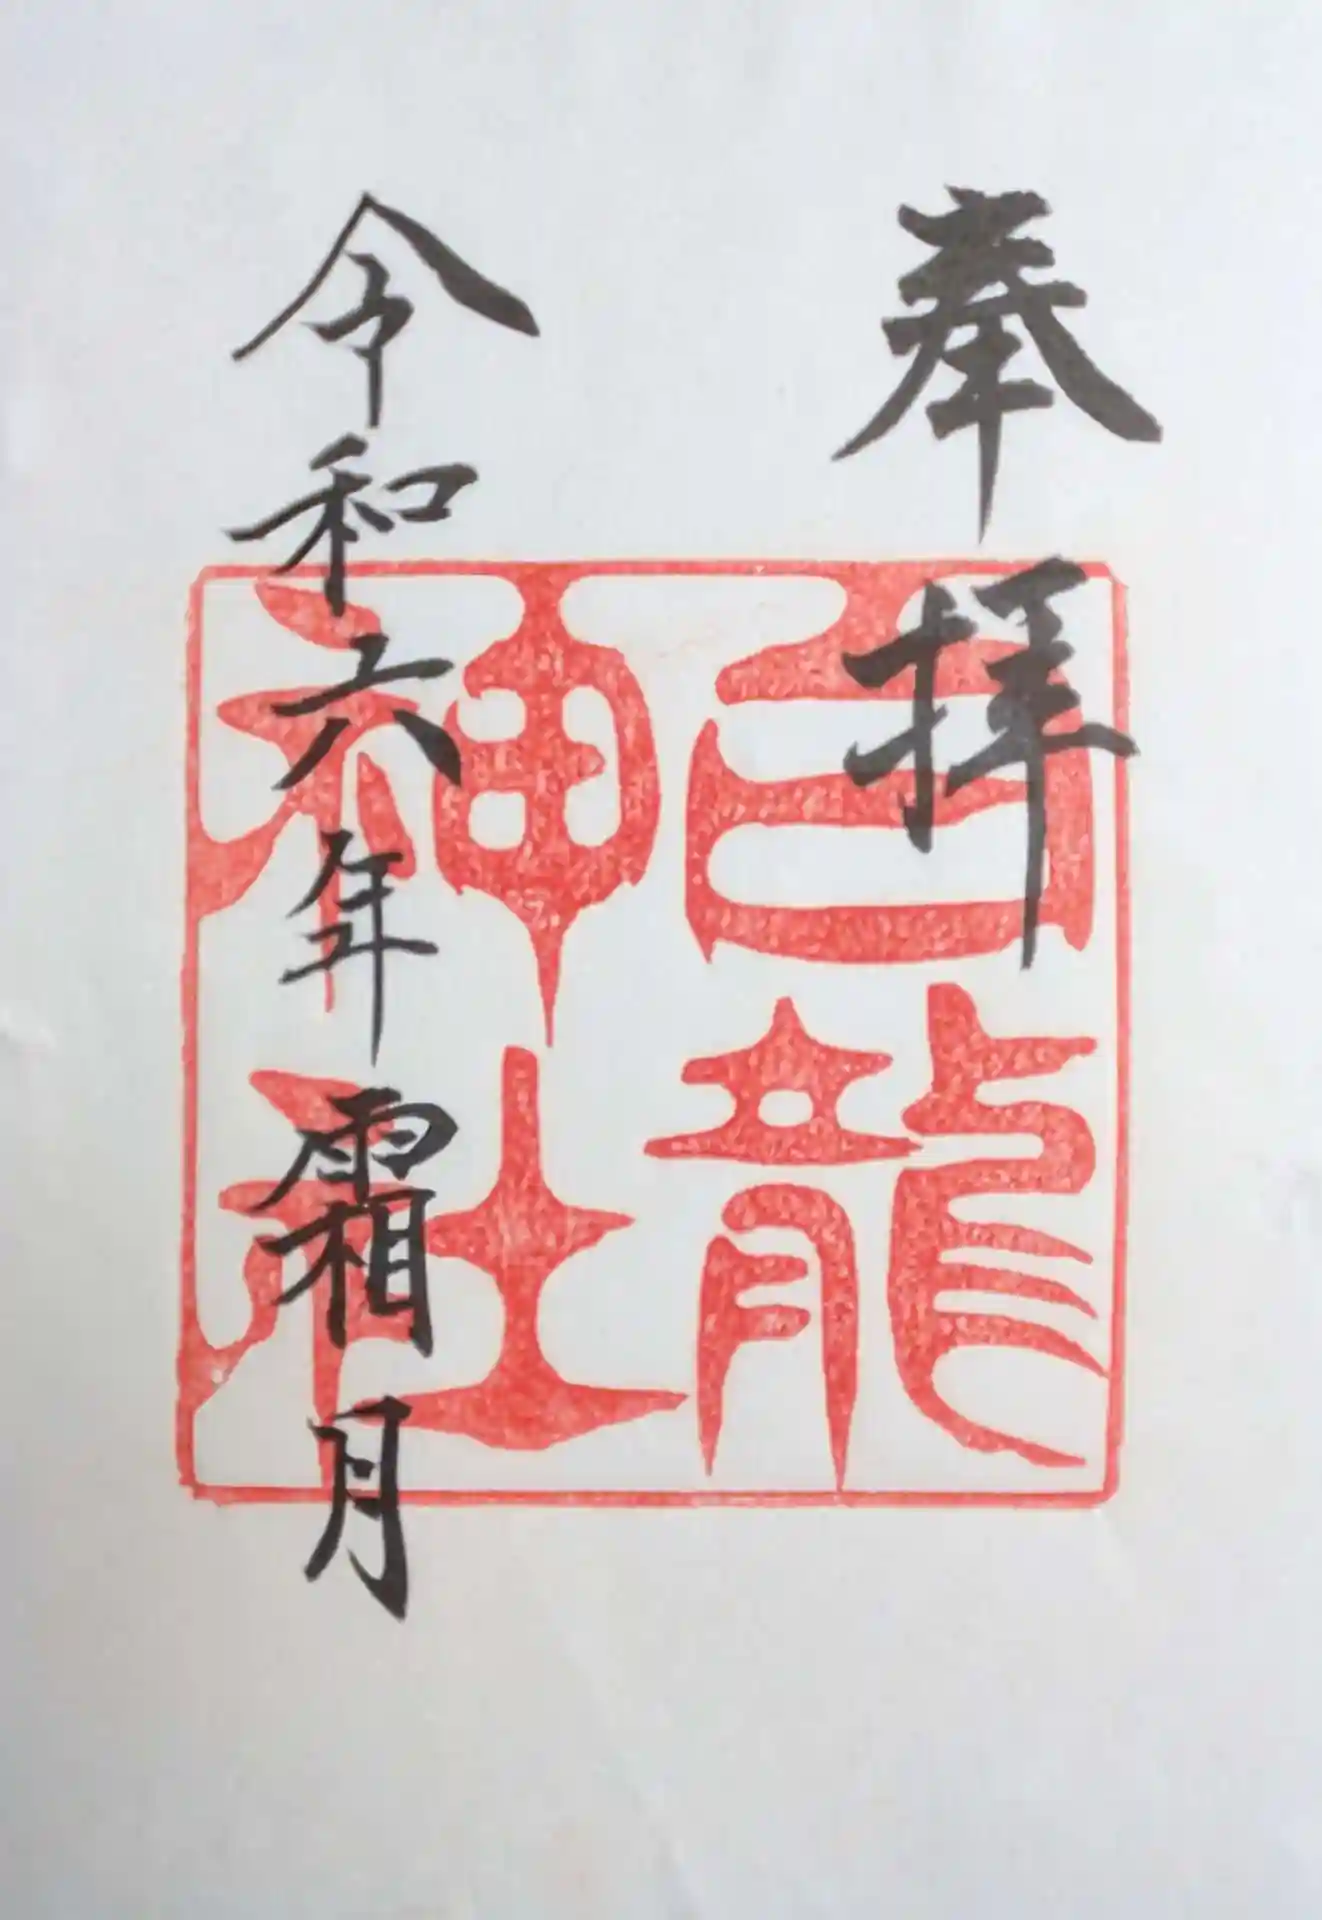 奉拝
白龍
神社
令和六年霜月